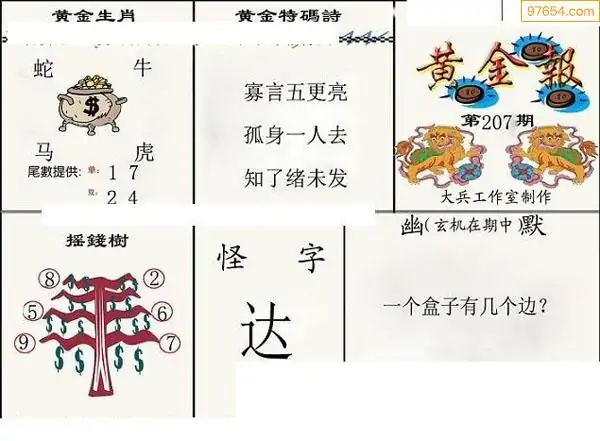 97654.com
黄金生肖
蛇 牛
马 虎
尾數提供: 单: 1 7
2 4
黄金特碼詩
寡言五更亮
孤身一人去
知了绪未发
黄金報
第207期
大兵工作室制作
摇錢樹
⑧ ②
⑤ ⑥
⑨ ⑦
怪 字
达
幽(玄机在期中)默
一个盒子有几个边？